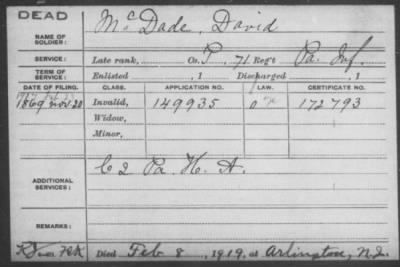 DEAD
McDade, David
NAME OF SOLDIER:
SERVICE: Late rank, Co. P, 71 Reg't Pa. Inf.
TERM OF SERVICE: Enlisted , 1 Discharged , 1
DATE OF FILING. CLASS. APPLICATION NO. LAW. CERTIFICATE NO.
1869 Nov. 20 Invalid, 149935 172793
Widow,
Minor,
ADDITIONAL SERVICES: C 2 Pa. H. A.
REMARKS:
Died Feb 8, 1919, at Arlington, N.J.